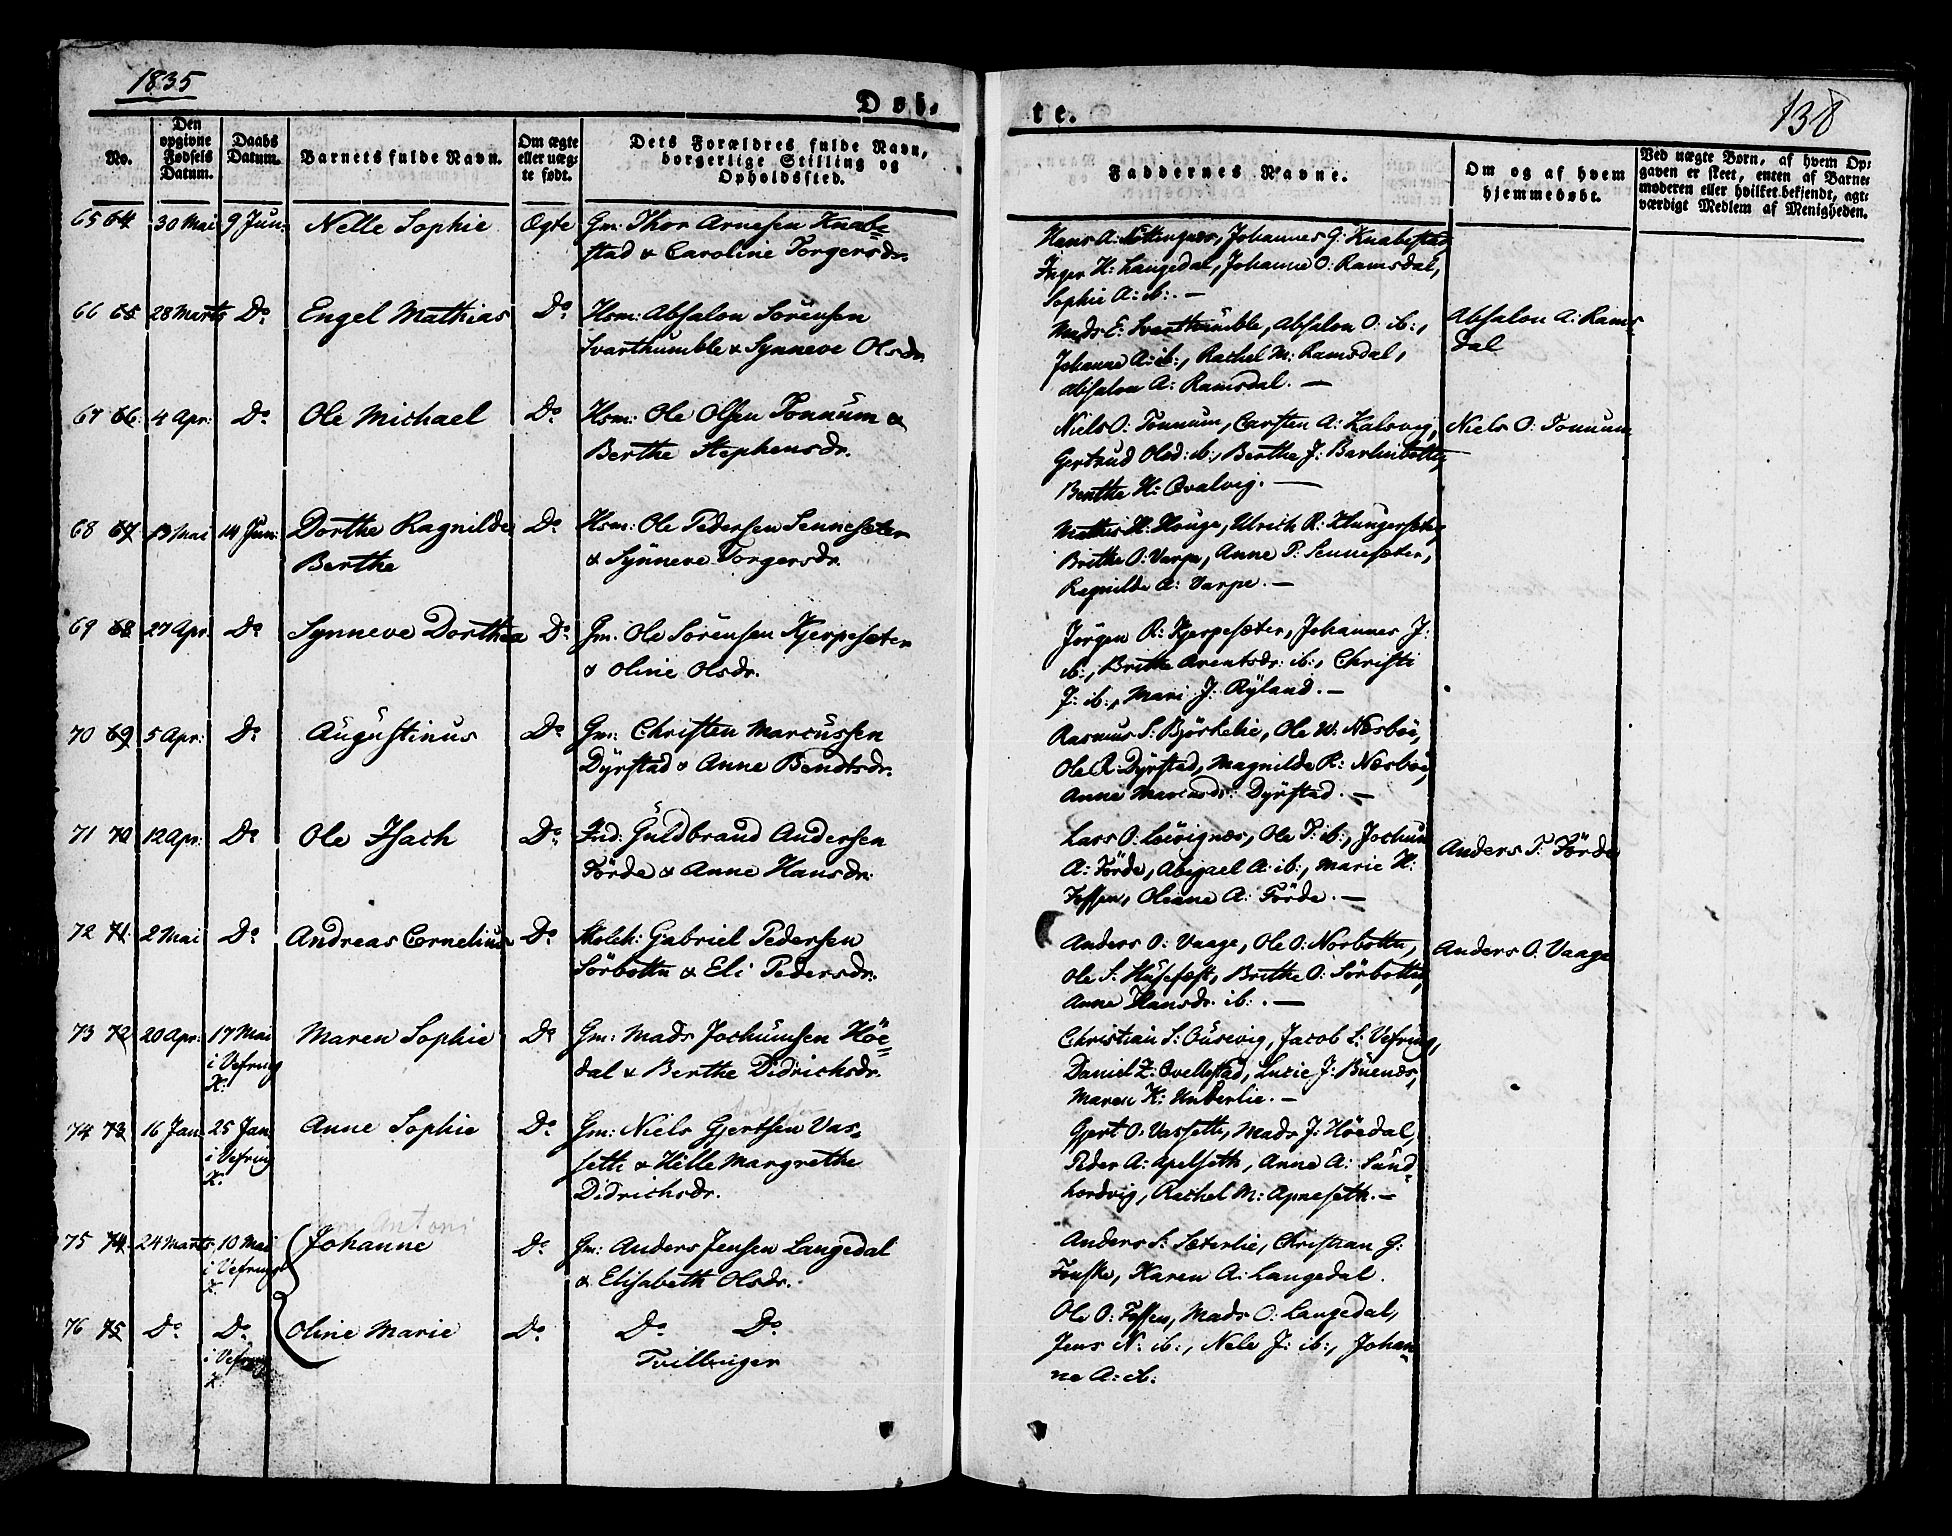 1835
Døb-
te.
138
No.
Den opgivne Fødsels Datum.
Daabs Datum.
Barnets fulde Navn.
Om ægte eller uægte født.
Dets Forældres fulde Navn, borgerlige Stilling og Opholdssted.
Faddernes Navne.
Om og af hvem hjemmedøbt.
Ved uægte Børn, af hvem Opgaven er skeet, enten af Barnemoderen eller hvilket bekjendt, agtværdigt Medlem af Menigheden.
65 64 30 Mai 9 Jun: Nelle Sophie Ægte Gm: Thor Arnesen Knabe-
stad & Caroline Torgersdr.
Hans A: Johannes G: Knabestad
Inger H: Langedal, Johanne O: Ramsdal,
Sophie A: ib:. —
66 65 28 Marts Do Engel Mathias Do Hsm: Absalon Sörensen
Svarthumble & Synneve Olsdr.
Mads E: Svarthumble, Absalon O: ib:,
Johanne A: ib:, Rachel M: Ramsdal,
Absalon A: Ramsdal. —
Absalon A: Rams-
dal
67 66 4 Apr: Do Ole Michael Do Hsm: Ole Olsen Tonnum &
Berthe Stephensdr.
Niels O: Tonnum, Carsten A: Kalsvig,
Gertrud Olsd: ib:, Berthe J: Barlinbotten,
Benthe H: Qvalvig. —
Niels O: Tonnum
68 67 13 Mai 14 Jun: Dorthe Ragnilde
Berthe
Do Hsm: Ole Pedersen Sennesæter
& Synneve Torgersdr.
Mathis H: Houge, Ulrich R: Klungersæt,
Brithe O: Varpe, Anne P: Sennesæter,
Ragnilde A: Varpe. —
69 68 27 Apr Do Synneve Dorthea Do Gm: Ole Sörensen Kjerpesæter
& Oline Olsdr.
Jörgen R: Kjerpesæter, Johannes J:
ib:, Brithe Arentsdr: ib:, Christi
J: ib:, Mari J: Ryland. —
70 69 5 Apr: Do Augustinus Do Gm: Christen Marcussen
Dyrstad & Anne Bendtsdr.
Rasmus S: Björkelie, Ole W: Næsböe,
Ole R: Dyrstad, Magnilde R: Næsböe,
Anne Marcusdr: Dyrstad. —
71 70 12 Apr: Do Ole Isach Do Ind: Guldbrand Andersen
Förde & Anne Hansdr:
Lars O: Ole T: ib:, Jochum
A: Förde, Abigael A: ib:, Marie H:
Tessen, Oleane A: Förde. —
Anders T: Förde
72 71 2 Mai Do Andreas Cornelius Do Skoleh: Gabriel Pedersen
Sörbotten & Eli Pedersdr.
Anders O: Vaage, Ole O: Norbotten,
Ole S: Husefest, Brithe O: Sörbotten,
Anne Hansdr. ib:. —
Anders O. Vaage
73 72 20 Apr: 17 Mai
i Vefring
K:
Maren Sophie Do Gm: Mads Jochumsen Höe-
dal & Berthe Didrichsdr.
Christian S: Ousevig, Jacob L: Vefring,
Daniel Z: Qvellestad, Lucie J: Buenæs,
Maren K: Underlie. —
74 73 16 Jan: 25 Jan:
i Vefring
K.
Anne Sophie Do Gm: Niels Gjertsen Vas-
sette & Helle Margrethe
Didrichsdr.
Gjert O: Vassette, Mads J: Höedal,
Peder A: Apelseth, Anne A: Sund-
hordvig, Rachel M: Apneseth. —
Antoni
75 74 24 Marts 10 Mai
i Vefring
K.
Johanne Do Gm: Anders Jensen Langedal
& Elisabeth Olsdr.
Anders S: Sæterlie, Christian G:
Karen A: Langedal.
76 75 Do Do
i Vefring
K.
Oline Marie Do Do Do
Tvillinger
Ole O: Tessen, Mads O: Langedal,
Jens N: ib:, Nele J: ib:, Johan-
ne A: ib: